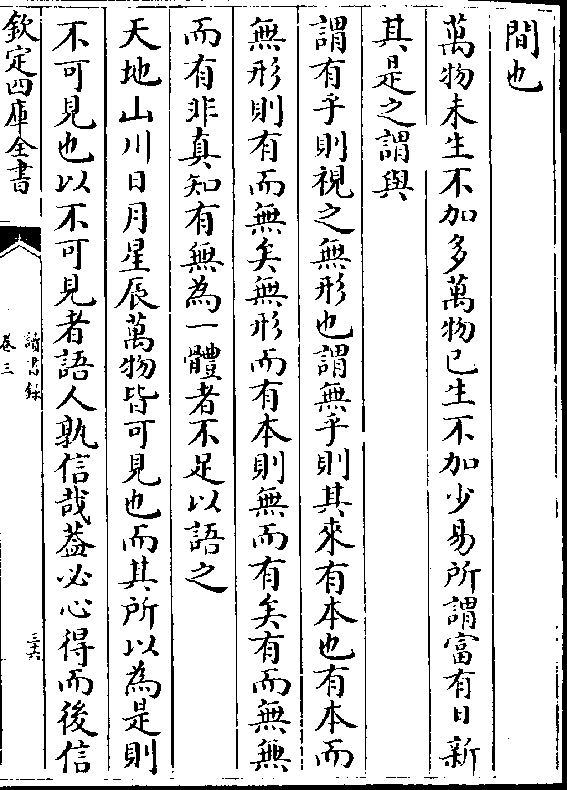 間也
萬物未生不加多萬物已生不加少易所謂富有日新
其是之謂與
謂有乎則視之無形也謂無乎則其來有本也有本而
無形則有而無矣無形而有本則無而有矣有而無無
而有非真知有無為一體者不足以語之
天地山川日月星辰萬物皆可見也而其所以為是則
不可見也以不可見者語人孰信哉葢必心得而後信
欽定四庫全書
讀書錄
卷三
三六